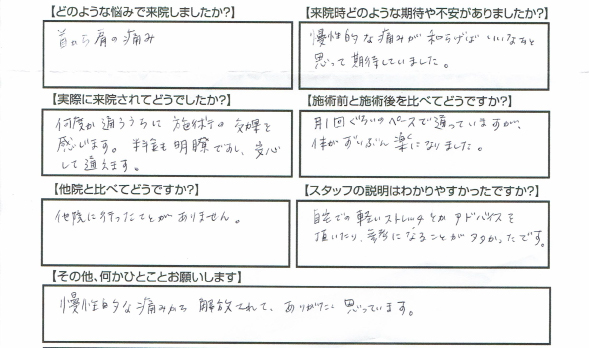 【どのような悩みで来院しましたか?】
首から肩の痛み
【来院時どのような期待や不安がありましたか?】
慢性的な痛みが和らげばいいなあと
思って期待していました。
【実際に来院されてどうでしたか?】
何度か通ううちに施術の効果を
感じます。料金も明瞭ですし、安心
して通えます。
【施術前と施術後を比べてどうですか?】
月1回ぐらいのペースで通っていますが、
体がずいぶん楽になりました。
【他院と比べてどうですか?】
他院に行ったことがありません。
【スタッフの説明はわかりやすかったですか?】
自宅での軽いストレッチとかアドバイスを
頂いたり、参考になることが多かったです。
【その他、何かひとことお願いします】
慢性的な痛みから解放されて、ありがたく思っています。